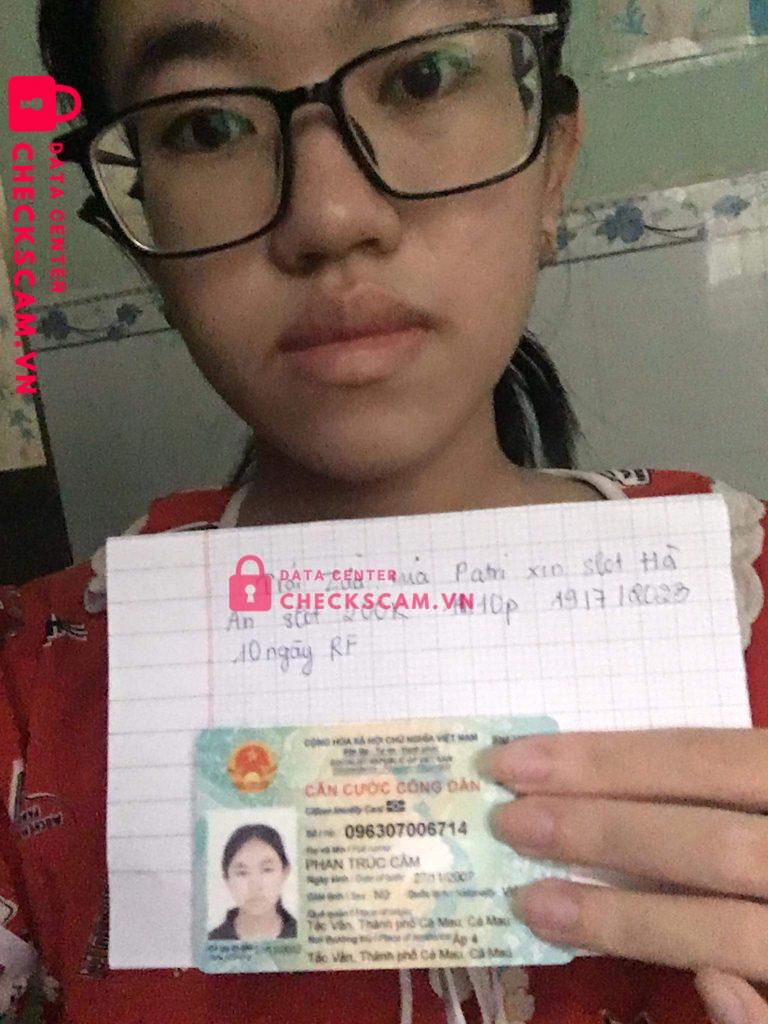 DATA CENTER
CHECKSCAM.VN
Patri xin slot Hà
DATA CENTER
CHECKSCAM.VN
An slot 200k 1h10p 19/7/2023
10 ngày RF
CỘNG HÒA XÃ HỘI CHỦ NGHĨA VIỆT NAM
Độc lập - Tự do - Hạnh phúc
SOCIALIST REPUBLIC OF VIET NAM
CĂN CƯỚC CÔNG DÂN
Citizen Identity Card
Số / No. 096307006714
Họ và tên / Full name
PHAN TRÚC CẦM
Ngày sinh / Date of birth
Giới tính / Sex Nữ Quốc tịch / Nationality
Quê quán / Place of origin
Tắc Vân, Thành phố Cà Mau, Cà Mau
Nơi thường trú / Place of residence Ấp 4
Tắc Vân, Thành phố Cà Mau, Cà Mau